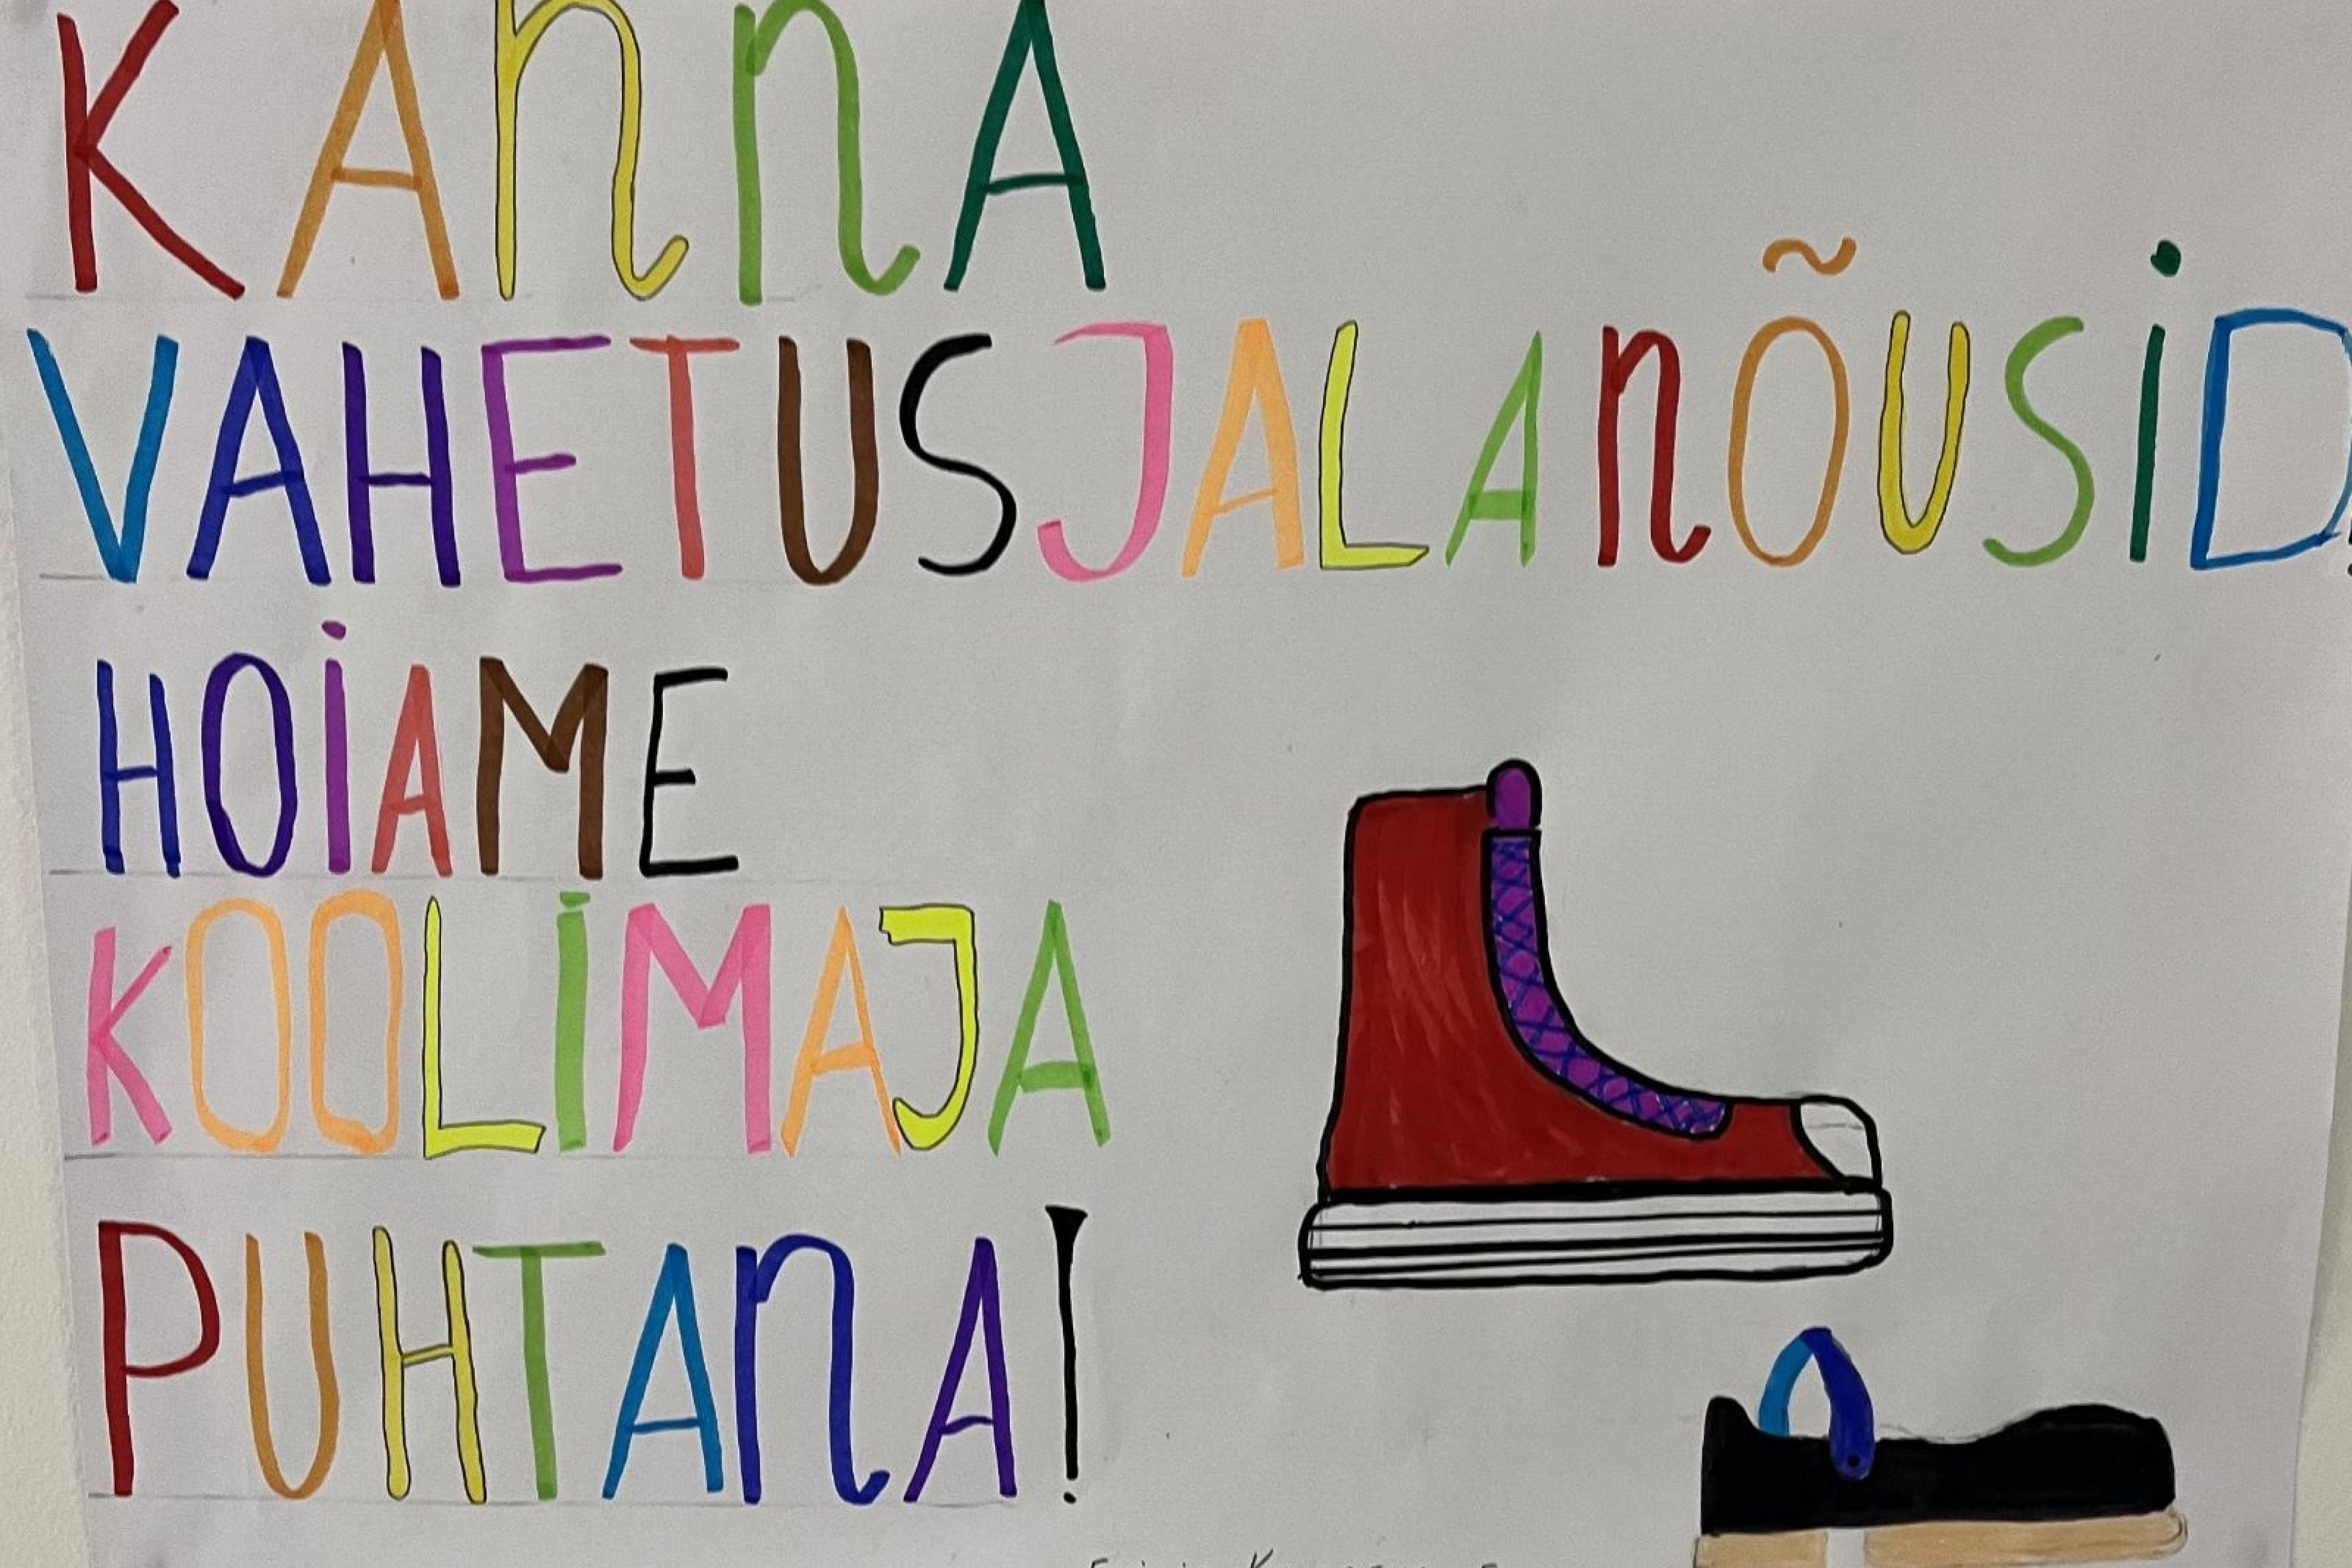 KANNA
VAHETUSJALANÕUSID!
HOIAME
KOOLIMAJA
PUHTANA!